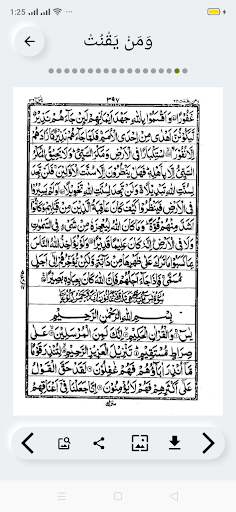 1:25
25
وَمَنْ يَقْنُتْ
٣٩٧
غَفُوْرًا وَاَقْسَمُوْا بِاللّٰهِ جَهْدَ اَيْمَانِهِمْ لَئِنْ جَآءَهُمْ نَذِيْرٌ
لَّيَكُوْنُنَّ اَهْدٰى مِنْ اِحْدَى الْاُمَمِ فَلَمَّا جَآءَهُمْ نَذِيْرٌ مَّا زَادَهُمْ
اِلَّا نُفُوْرًا اسْتِكْبَارًا فِى الْاَرْضِ وَمَكْرَ السَّيِّئِ وَلَا يَحِيْقُ الْمَكْرُ
السَّيِّئُ اِلَّا بِاَهْلِهٖ فَهَلْ يَنْظُرُوْنَ اِلَّا سُنَّتَ الْاَوَّلِيْنَ فَلَنْ تَجِدَ
لِسُنَّتِ اللّٰهِ تَبْدِيْلًا وَلَنْ تَجِدَ لِسُنَّتِ اللّٰهِ تَحْوِيْلًا اَوَلَمْ يَسِيْرُوْا
فِى الْاَرْضِ فَيَنْظُرُوْا كَيْفَ كَانَ عَاقِبَةُ الَّذِيْنَ مِنْ قَبْلِهِمْ وَكَانُوْٓا
اَشَدَّ مِنْهُمْ قُوَّةً وَمَا كَانَ اللّٰهُ لِيُعْجِزَهٗ مِنْ شَىْءٍ فِى السَّمٰوٰتِ
وَلَا فِى الْاَرْضِ اِنَّهٗ كَانَ عَلِيْمًا قَدِيْرًا وَلَوْ يُؤَاخِذُ اللّٰهُ النَّاسَ
بِمَا كَسَبُوْا مَا تَرَكَ عَلٰى ظَهْرِهَا مِنْ دَآبَّةٍ وَّلٰكِنْ يُّؤَخِّرُهُمْ اِلٰٓى اَجَلٍ
مُّسَمًّى فَاِذَا جَآءَ اَجَلُهُمْ فَاِنَّ اللّٰهَ كَانَ بِعِبَادِهٖ بَصِيْرًا
بِسْمِ اللّٰهِ الرَّحْمٰنِ الرَّحِيْمِ
يٰسٓ وَالْقُرْاٰنِ الْحَكِيْمِ اِنَّكَ لَمِنَ الْمُرْسَلِيْنَ عَلٰى
صِرَاطٍ مُّسْتَقِيْمٍ تَنْزِيْلَ الْعَزِيْزِ الرَّحِيْمِ لِتُنْذِرَ قَوْمًا
مَّآ اُنْذِرَ اٰبَآؤُهُمْ فَهُمْ غٰفِلُوْنَ لَقَدْ حَقَّ الْقَوْلُ
عَلٰٓى اَكْثَرِهِمْ فَهُمْ لَا يُؤْمِنُوْنَ اِنَّا جَعَلْنَا فِىْٓ اَعْنَاقِهِمْ